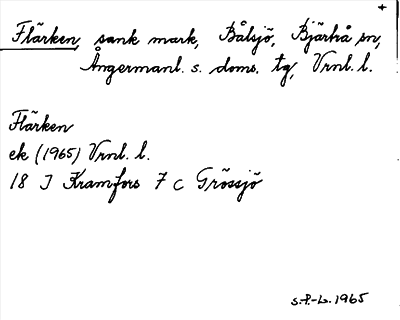 +
Flärken, sank mark, Bålsjö, Bjärtrå sn,
Ångermanl. s. doms. tg, Vrnl. l.
Flärken
ek (1965) Vrnl. l.
18 J Kramfors 7 c Grössjö
S.P-L. 1965